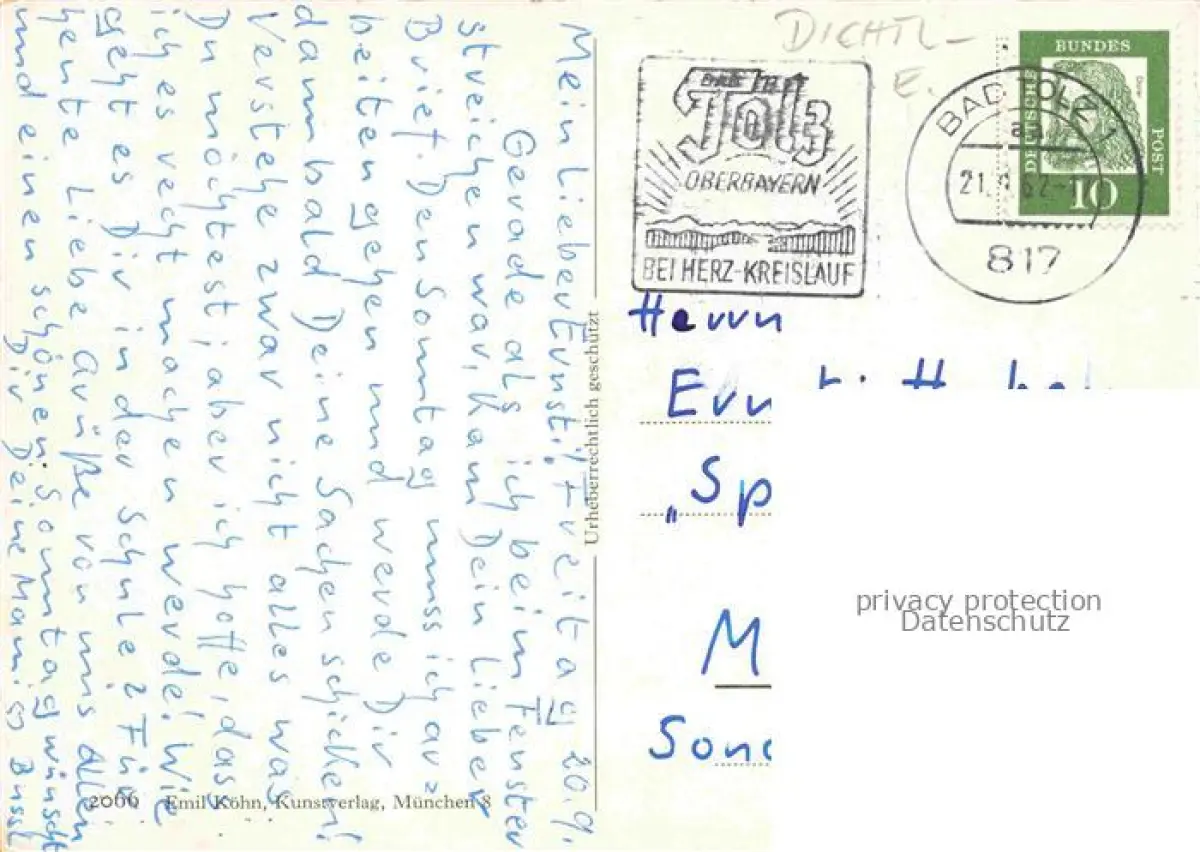 Mein lieber Ernsti! Freitag 20.9.
Gerade als ich beim Fenster
streichen war, kam Dein lieber
Brief. Den Sonntag muss ich ar=
beiten gehen und werde Dir
dann bald Deine Sachen schicken!
Verstehe zwar nicht alles was
Du möchtest, aber ich hoffe, das
ich es recht machen werde! Wie
geht es Dir in der Schule? Für
heute liebe Grüße von uns allen
und einen schönen Sonntag wünscht
Dir Deine Mami
2066 Emil Köhn, Kunstverlag, München 8
Urheberrechtlich geschützt
DICHTL-
E.
BAD TÖLZ
OBERBAYERN
BEI HERZ-KREISLAUF
BAD TÖLZ 1
aa
21.
62
817
DEUTSCHE
BUNDES
POST
Dürer
10
Herrn
"Sp
M
privacy protection
Datenschutz